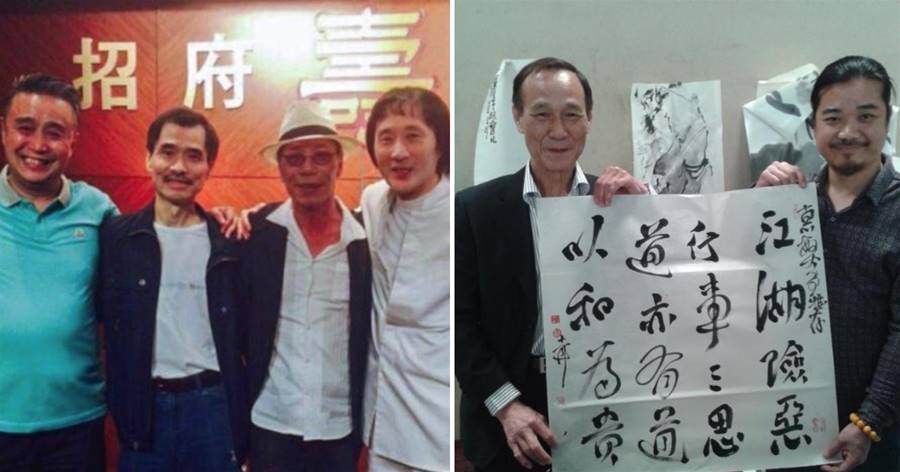 招府
壽
江湖險惡
行事三思
道亦有道
以和為貴